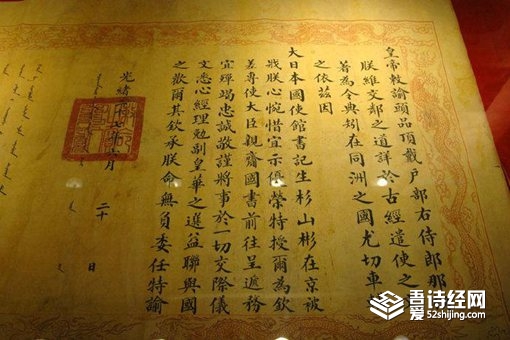 皇帝敕諭頭品頂戴戶部右侍郎那
朕維交鄰之道詳於古經遣使之
著為令典矧在同洲之國尤切車
之依茲因
大日本國使館書記生杉山彬在京被
戕朕心惋惜宜示優榮特授爾為欽
差專使大臣親齎國書前往呈遞務
宜殫竭忠誠敬謹將事於一切交際儀
文悉心經理勉副皇華之選益聯與國
之歡爾其欽承朕命無負委任特諭
光緒二十七年 月 二十 日
吾爱诗经网
52shijing.com